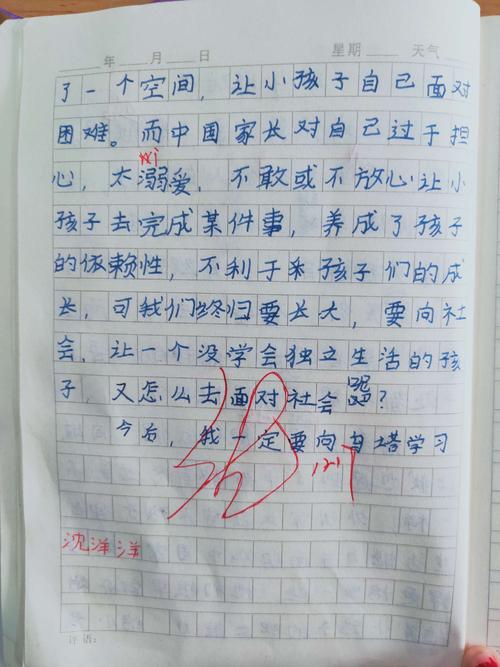 年 月 日 星期 天气
了一个空间，让小孩子自己面对
困难。而中国家长对自己过于担
心，太溺爱，不敢或不放心让小
孩子去完成某件事，养成了孩子
的依赖性，不利于孩子们的成
长，可我们终归要长大，要向社
会，让一个没学会独立生活的孩
子，又怎么去面对社会呢？
今后，我一定要向塔学习
沈洋洋
评语：